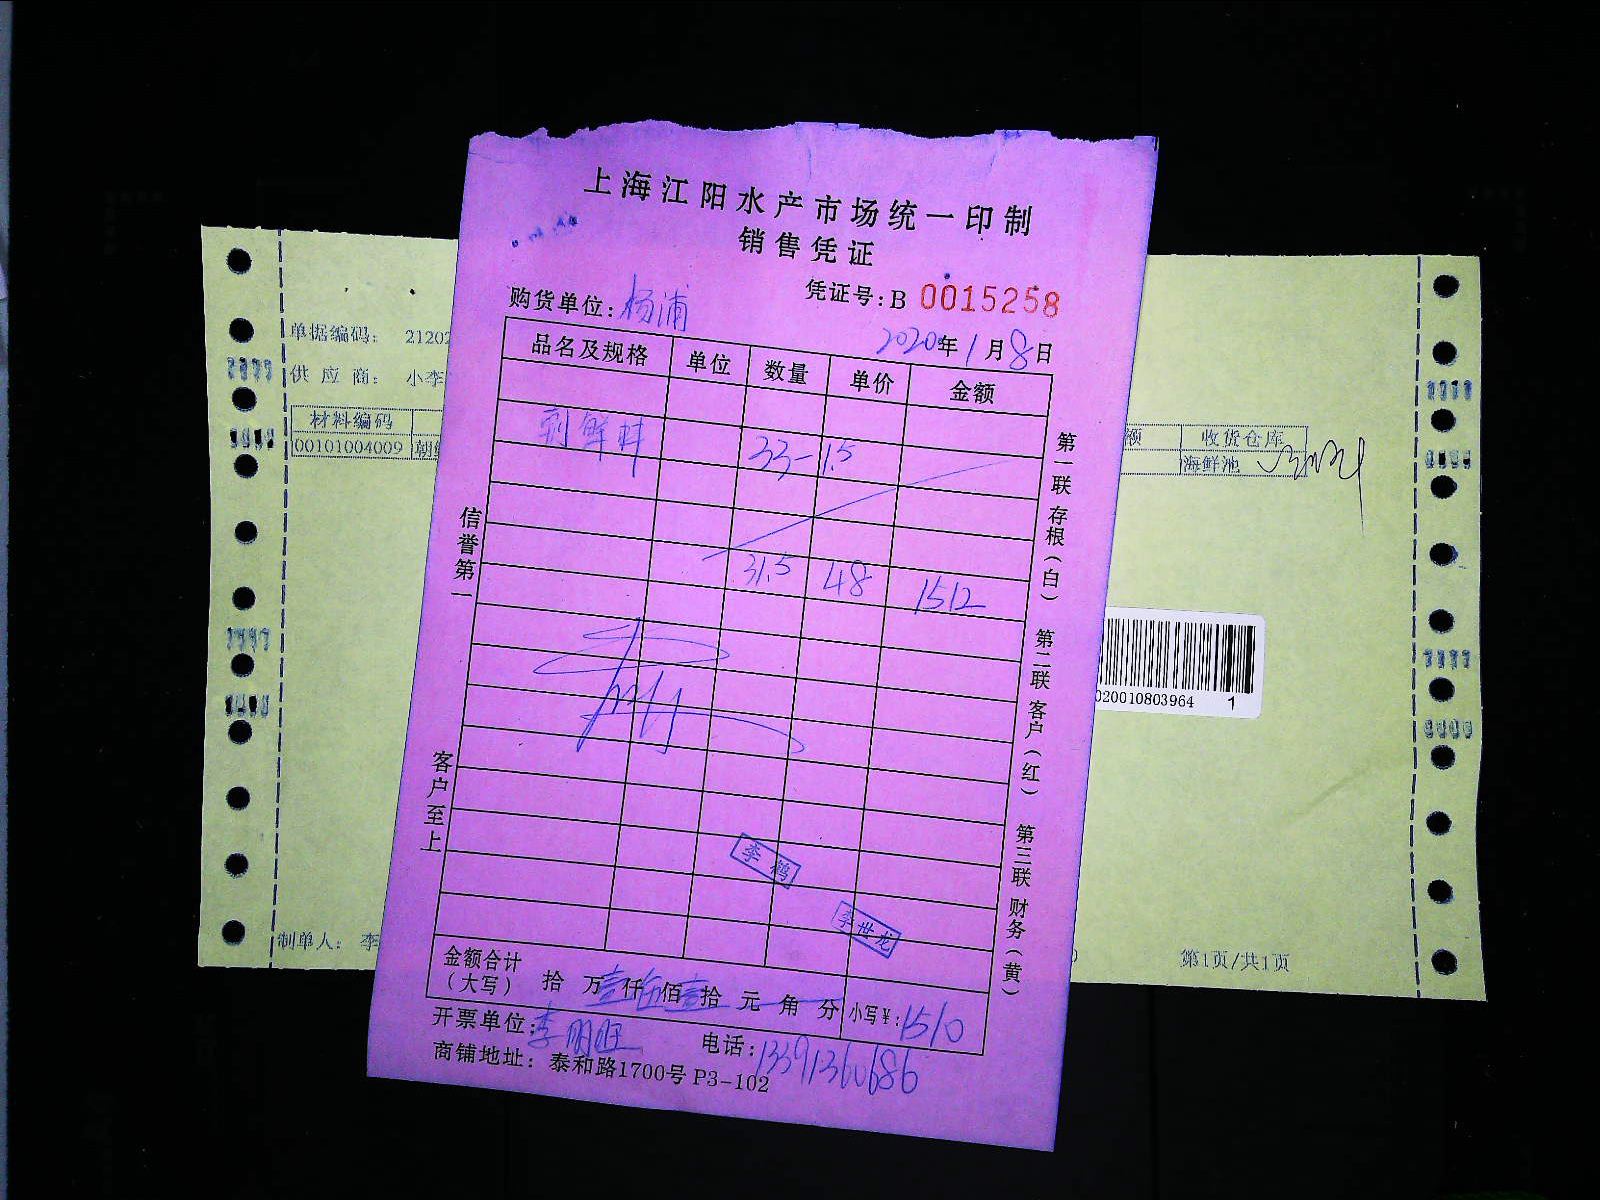 上海江阳水产市场统一印制
销售凭证
凭证号：B 0015258
购货单位：杨浦
2020年1月8日
品名及规格 单位 数量 单价 金额
朝鲜蚌 33-1.5
31.5 48 1512
李鹤
李世龙
金额合计（大写） 拾 万壹仟伍佰壹拾 元 角 分 小写¥：1510
开票单位：李明旺 电话：13391360686
商铺地址：泰和路1700号 P3-102
信誉第一
客户至上
第一联 存根（白） 第二联 客户（红） 第三联 财务（黄）
单据编码： 21202
供 应 商： 小李
材料编码
00101004009 朝
额 收货仓库
海鲜池
020010803964 1
制单人： 李
第1页/共1页